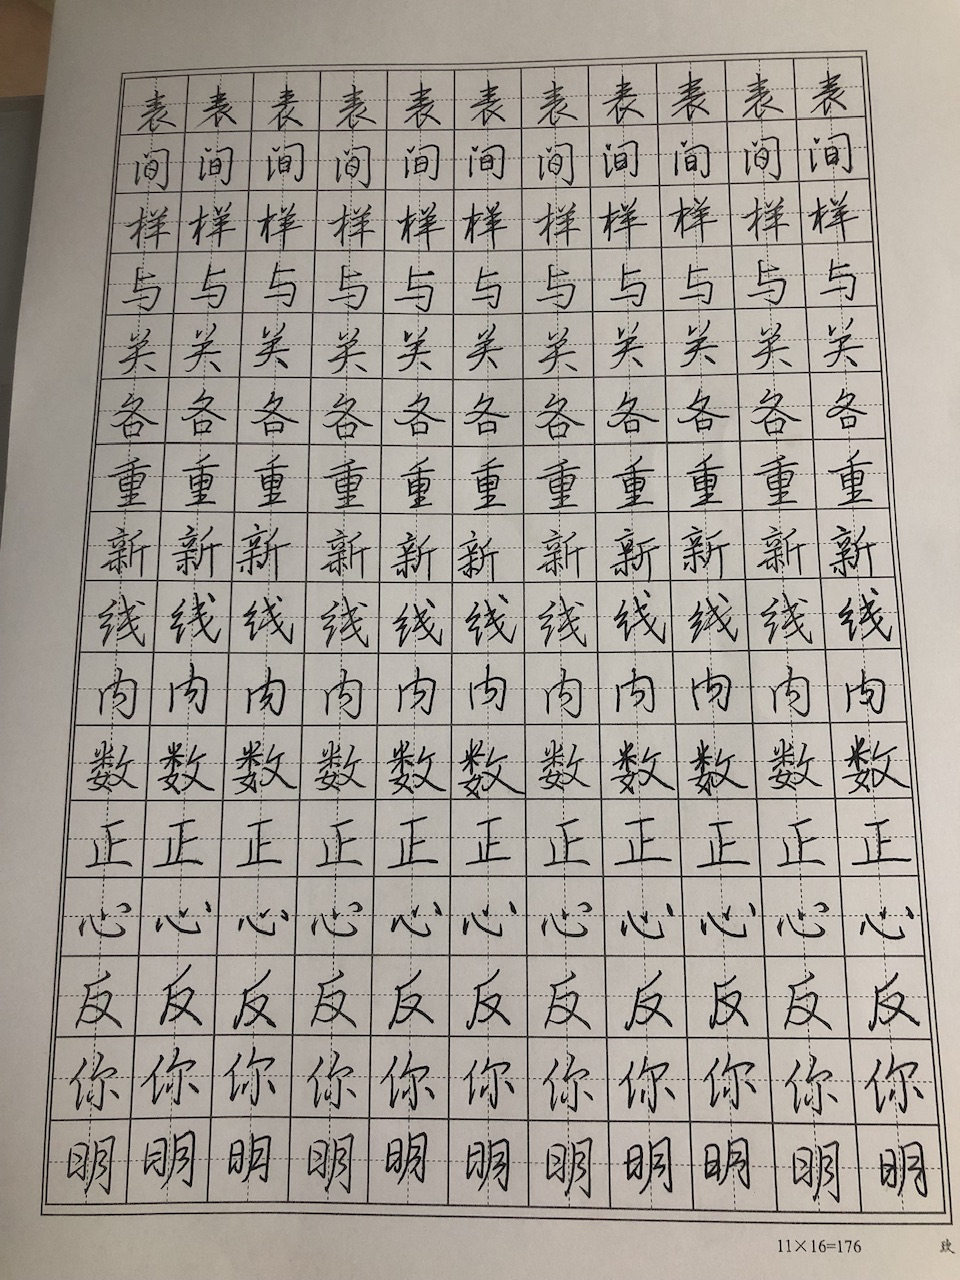 表表表表表表表表表表表
间间间间间间间间间间间
样样样样样样样样样样样
与与与与与与与与与与与
关关关关关关关关关关关
各各各各各各各各各各各
重重重重重重重重重重重
新新新新新新新新新新新
线线线线线线线线线线线
内内内内内内内内内内内
数数数数数数数数数数数
正正正正正正正正正正正
心心心心心心心心心心心
反反反反反反反反反反反
你你你你你你你你你你你
明明明明明明明明明明明
11×16=176